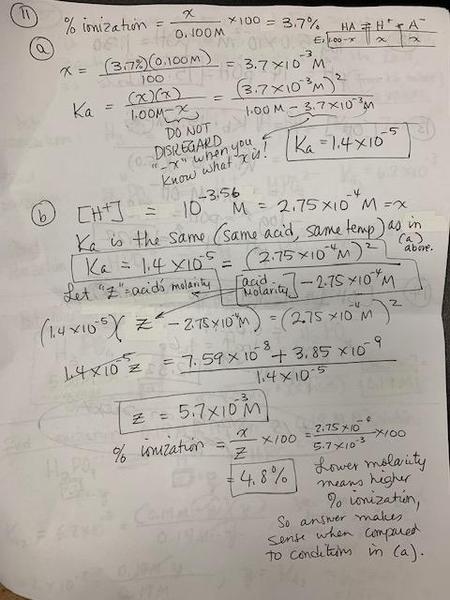 ⑪ % ionization = x / 0.100M × 100 = 3.7%
HA ⇌ H⁺ + A⁻
E: 1.00-x | x | x
ⓐ x = (3.7%)(0.100M) / 100 = 3.7 × 10⁻³ M
Ka = (x)(x) / 1.00M - x = (3.7 × 10⁻³ M)² / 1.00 M - 3.7 × 10⁻³ M
DO NOT
DISREGARD
"-x" when you
know what x is!
Ka = 1.4 × 10⁻⁵
ⓑ [H⁺] = 10⁻³·⁵⁶ M = 2.75 × 10⁻⁴ M = x
Ka is the same (same acid, same temp) as in (a) above.
Ka = 1.4 × 10⁻⁵ = (2.75 × 10⁻⁴ M)² / [acid molarity] - 2.75 × 10⁻⁴ M
Let "z" = acid's molarity
(1.4 × 10⁻⁵)(z - 2.75 × 10⁻⁴ M) = (2.75 × 10⁻⁴ M)²
1.4 × 10⁻⁵ z = 7.59 × 10⁻⁸ + 3.85 × 10⁻⁹ / 1.4 × 10⁻⁵
z = 5.7 × 10⁻³ M
% ionization = x / z × 100 = 2.75 × 10⁻⁴ / 5.7 × 10⁻³ × 100
= 4.8%
Lower molarity
means higher
% ionization,
so answer makes
sense when compared
to conditions in (a).